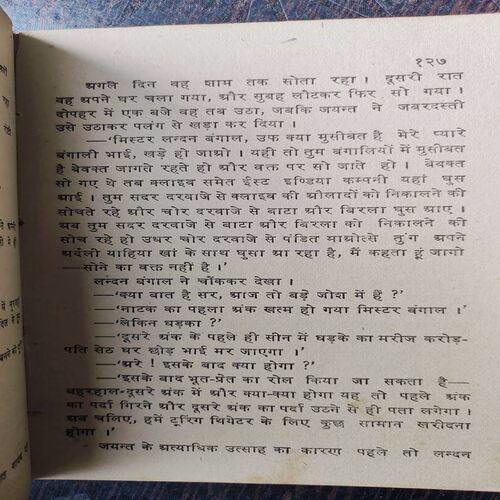 १२७
अगले दिन वह शाम तक सोता रहा । दूसरी रात
वह अपने घर चला गया, और सुबह लौटकर फिर सो गया ।
दोपहर में एक बजे वह तब उठा, जबकि जयन्त ने जबरदस्ती
उसे उठाकर पलंग से खड़ा कर दिया ।
—'मिस्टर लन्दन बंगाल, उफ क्या मुसीबत है मेरे प्यारे
बंगाली भाई, खड़े हो जाओ । यही तो तुम बंगालियों में मुसीबत
है बेवक्त जागते रहते हो और वक्त पर सो जाते हो । बेवक्त
सो गए थे तब क्लाइव समेत ईस्ट इण्डिया कम्पनी यहां घुस
आई । तुम सदर दरवाजे से क्लाइव की औलादों को निकालने की
सोचते रहे और चोर दरवाजे से बाटा और बिरला घुस आए ।
अब तुम सदर दरवाजे से बाटा और बिरला को निकालने की
सोच रहे हो उधर चोर दरवाजे से पंडित माओत्से तुंग अपने
अर्दली याहिया खां के साथ घुसा आ रहा है, मैं कहता हूं जागो
—सोने का वक्त नहीं है ।'
लन्दन बंगाल ने चौंककर देखा ।
—'क्या बात है सर, आज तो बड़े जोश में हैं ?'
—'नाटक का पहला अंक खत्म हो गया मिस्टर बंगाल ।'
—'लेकिन धड़का ?'
—'दूसरे अंक के पहले ही सीन में धड़के का मरीज करोड़-
पति सेठ घर छोड़ भाई मर जाएगा ।'
—'अरे ! इसके बाद क्या होगा ?'
—'इसके बाद भूत-प्रेत का रोल किया जा सकता है—
बहरहाल-दूसरे अंक में और क्या-क्या होगा यह तो पहले अंक
का पर्दा गिरने और दूसरे अंक का पर्दा उठने से ही पता लगेगा ।
अब चलिए, हमें टूरिंग थियेटर के लिए कुछ सामान खरीदना
होगा ।'
जयन्त के अत्याधिक उत्साह का कारण पहले तो लन्दन